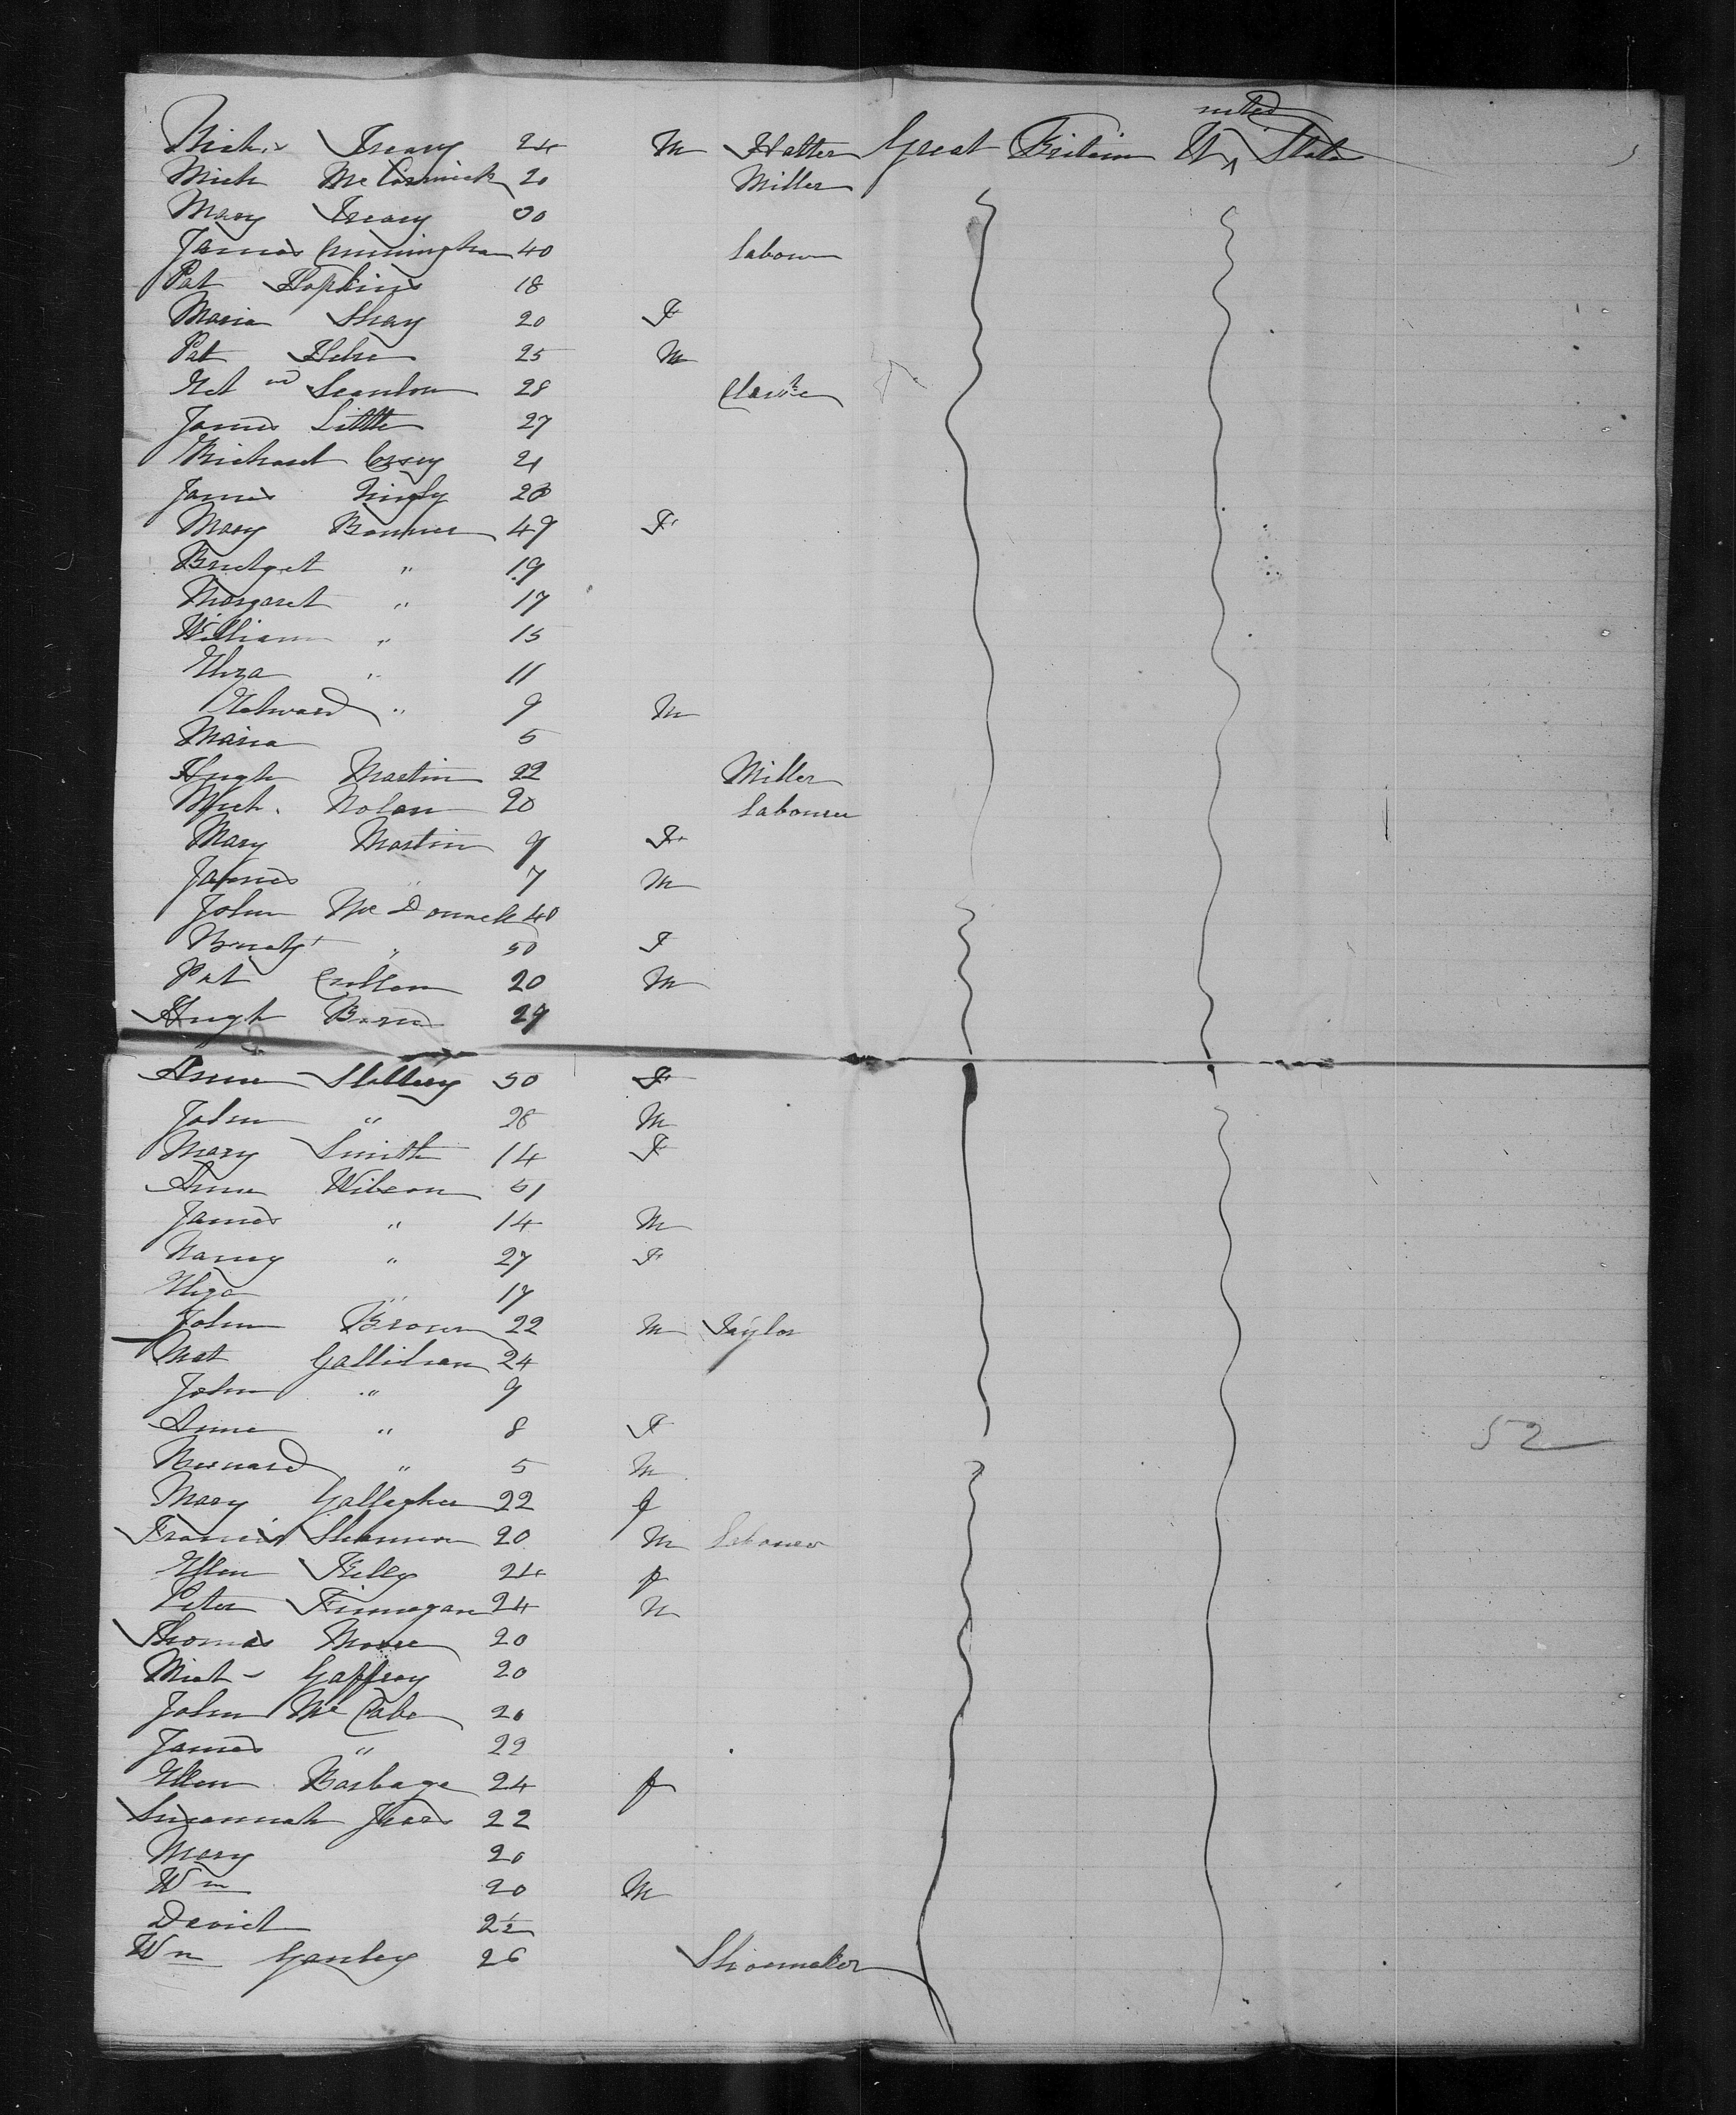 Mich. Treacy 24 M Hatter Great Britain United States
Mich McCormick 20 Miller
Mary Treacy 30
James Cunningham 40 Labour
Pat Hopkins 18
Maria Shay 20 F
Pat 25 M
Scanlon 28 Clark
James Little 27
Michael Casey 21
James 20
Mary Bonner 49 F
Bridget " 19
Margaret " 17
William " 15
Eliza " 11
Edward " 9 M
Maria 5
Hugh Martin 22 Miller
Mich. Nolan 20 Labourer
Mary Martin 9 F
James " 7 M
John McDonnell 40
Bridgt " 50 F
Pat Cullen 20 M
Hugh 29
Anne Slattery 50 F
John " 28 M
Mary Smith 14 F
Anne Wilson 51
James " 14 M
Nancy " 27 F
Eliza " 17
John Brown 22 M Taylor
Mat 24
John " 9
Anne " 8 F 52
Bernard " 5 M
Mary Gallagher 22 f
Francis Shannon 20 M Labourer
Ellen Kelly 24 f
Peter Finnegan 24 M
Thomas Moore 20
Mich Gaffney 20
John McCabe 20
James " 22
Ellen Barbage 24 f
Susannah 22
Mary 20
Wm 20 M
David 2½
Wm Ganley 26 Shoemaker